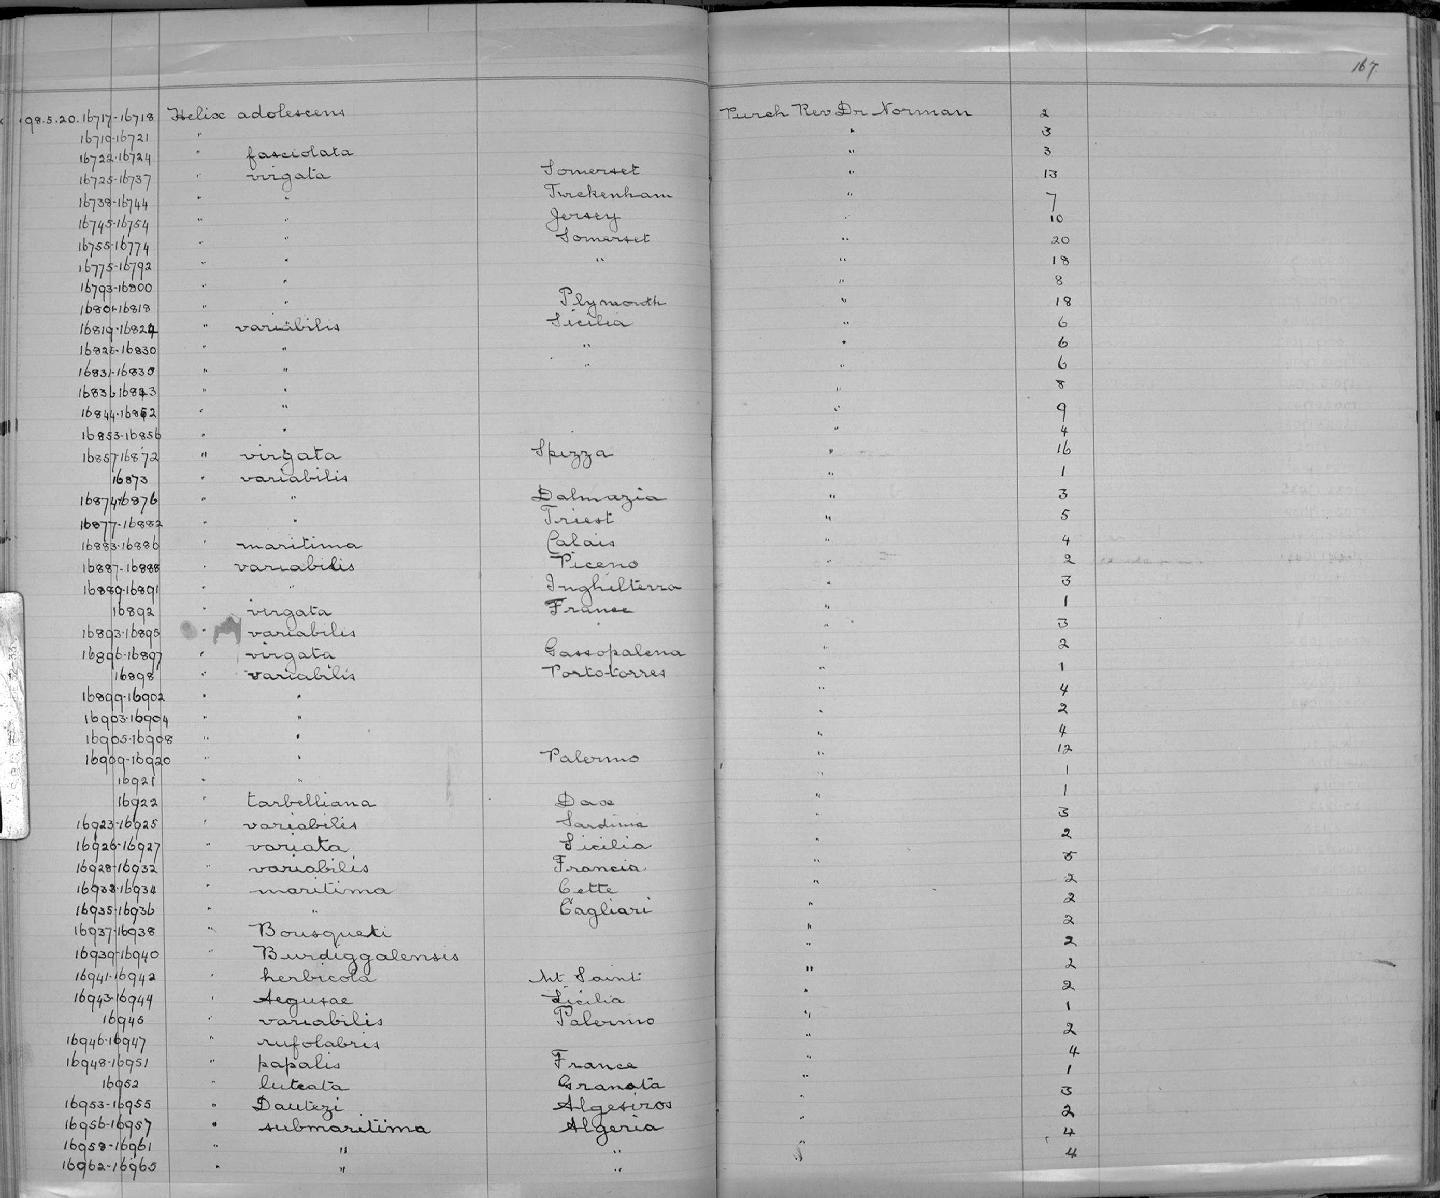 167
98.5.20.16717-16718 Helix adolescens Purch Rev Dr Norman 2
16719-16721 " " 3
16722-16724 " fasciolata " 3
16725-16737 " virgata Somerset " 13
16738-16744 " " Twickenham " 7
16745-16754 " " Jersey " 10
16755-16774 " " Somerset " 20
16775-16792 " " " " 18
16793-16800 " " " 8
16801-16818 " " Plymouth " 18
16819-16824 " variabilis Sicilia " 6
16825-16830 " " " " 6
16831-16835 " " " " 6
16836-16843 " " " 8
16844-16852 " " " 9
16853-16856 " " " 4
16857-16872 " virgata Spezza " 16
16873 " variabilis " 1
16874-16876 " " Dalmazia " 3
16877-16882 " " Triest " 5
16883-16886 " maritima Calais " 4
16887-16888 " variabilis Piceno " 2
16889-16891 " " Inghilterra " 3
16892 " virgata France " 1
16893-16895 " variabilis " 3
16896-16897 " virgata Gassopalena " 2
16898 " variabilis Porto-torres " 1
16899-16902 " " " 4
16903-16904 " " " 2
16905-16908 " " " 4
16909-16920 " " Palermo " 12
16921 " " " 1
16922 " tarbelliana Dax " 1
16923-16925 " variabilis Sardinia " 3
16926-16927 " variata Sicilia " 2
16928-16932 " variabilis Francia " 5
16933-16934 " maritima Cette " 2
16935-16936 " " Cagliari " 2
16937-16938 " Bousqueti " 2
16939-16940 " Burdiggalensis " 2
16941-16942 " herbicola Mt Saint " 2
16943-16944 " Aegusae Sicilia " 2
16945 " variabilis Palermo " 1
16946-16947 " rufolabris " 2
16948-16951 " papalis France " 4
16952 " luteata Granata " 1
16953-16955 " Dautezi Algesiros " 3
16956-16957 " submaritima Algeria " 2
16958-16961 " " " " 4
16962-16965 " " " " 4